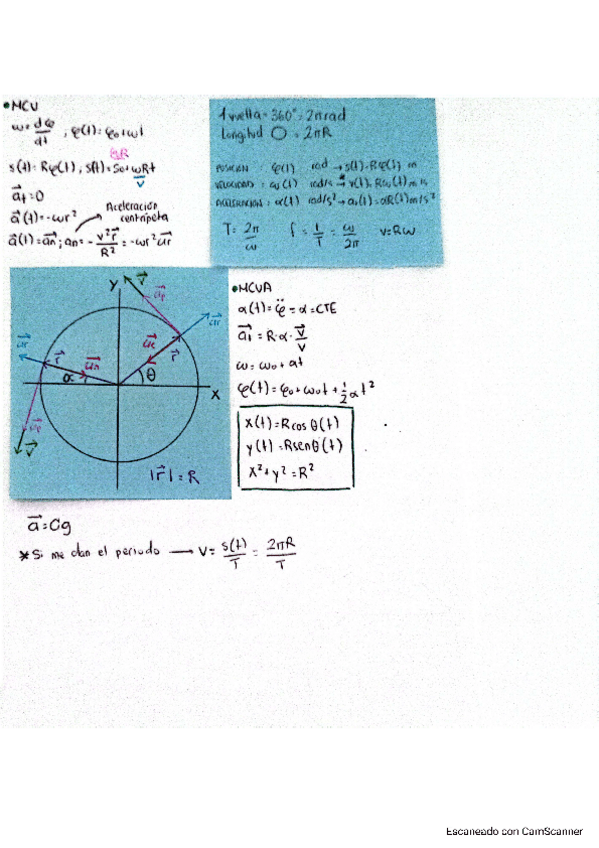 • MCU
ω = dφ/dt ; φ(t) = φ₀ + ωt
φ₀R
s(t) = Rφ(t) ; s(t) = s₀ + ωRt
v⃗
a⃗t = 0
Aceleración
centrípeta
a⃗(t) = -ωr²
a⃗(t) = a⃗n ; an = - v²r⃗/R² = -ωr² u⃗r
1 vuelta = 360° = 2π rad
Longitud O = 2πR
POSICIÓN : φ(t) rad → s(t) = Rφ(t) m
VELOCIDAD : ω(t) rad/s → v(t) = Rω(t) m/s
ACELERACIÓN : α(t) rad/s² → at(t) = αR(t) m/s²
T = 2π/ω f = 1/T = ω/2π v = Rω
Y
v⃗
u⃗r
r⃗
θ
X
u⃗r
r⃗
α
v⃗
|r⃗| = R
• MCUA
α(t) = φ̈ = α = CTE
a⃗t = R·α· v⃗/v
ω = ω₀ + αt
φ(t) = φ₀ + ω₀t + 1/2 αt²
x(t) = Rcos θ(t)
y(t) = Rsenθ(t)
x² + y² = R²
a⃗ = Cg
* Si me dan el periodo → v = s(t)/T = 2πR/T
Escaneado con CamScanner